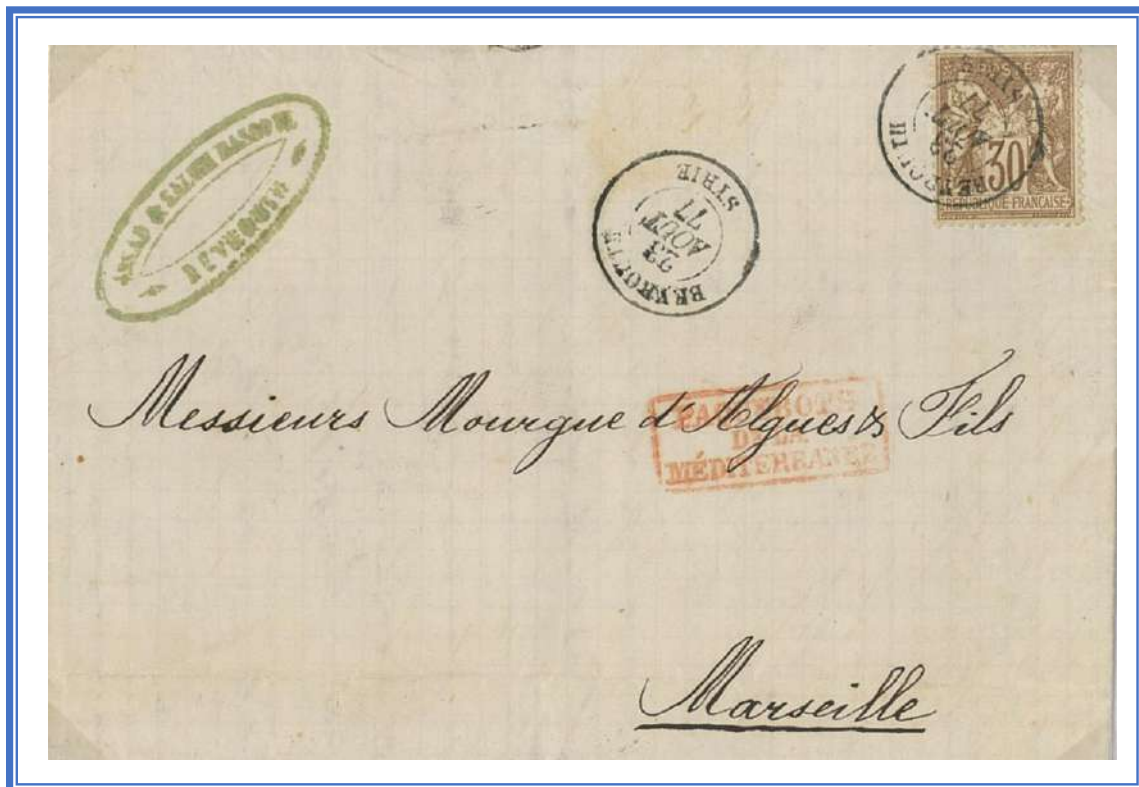 ASSAD & SALIM
BEYROUTH
BEYROUTH
23
AOUT
77
SYRIE
BEYROUTH
23
AOUT
77
SYRIE
30
REPUBLIQUE FRANÇAISE
Messieurs Mourgue d'Algues & Fils
PAQUEBOTS
DE LA
MÉDITERRANÉE
Marseille